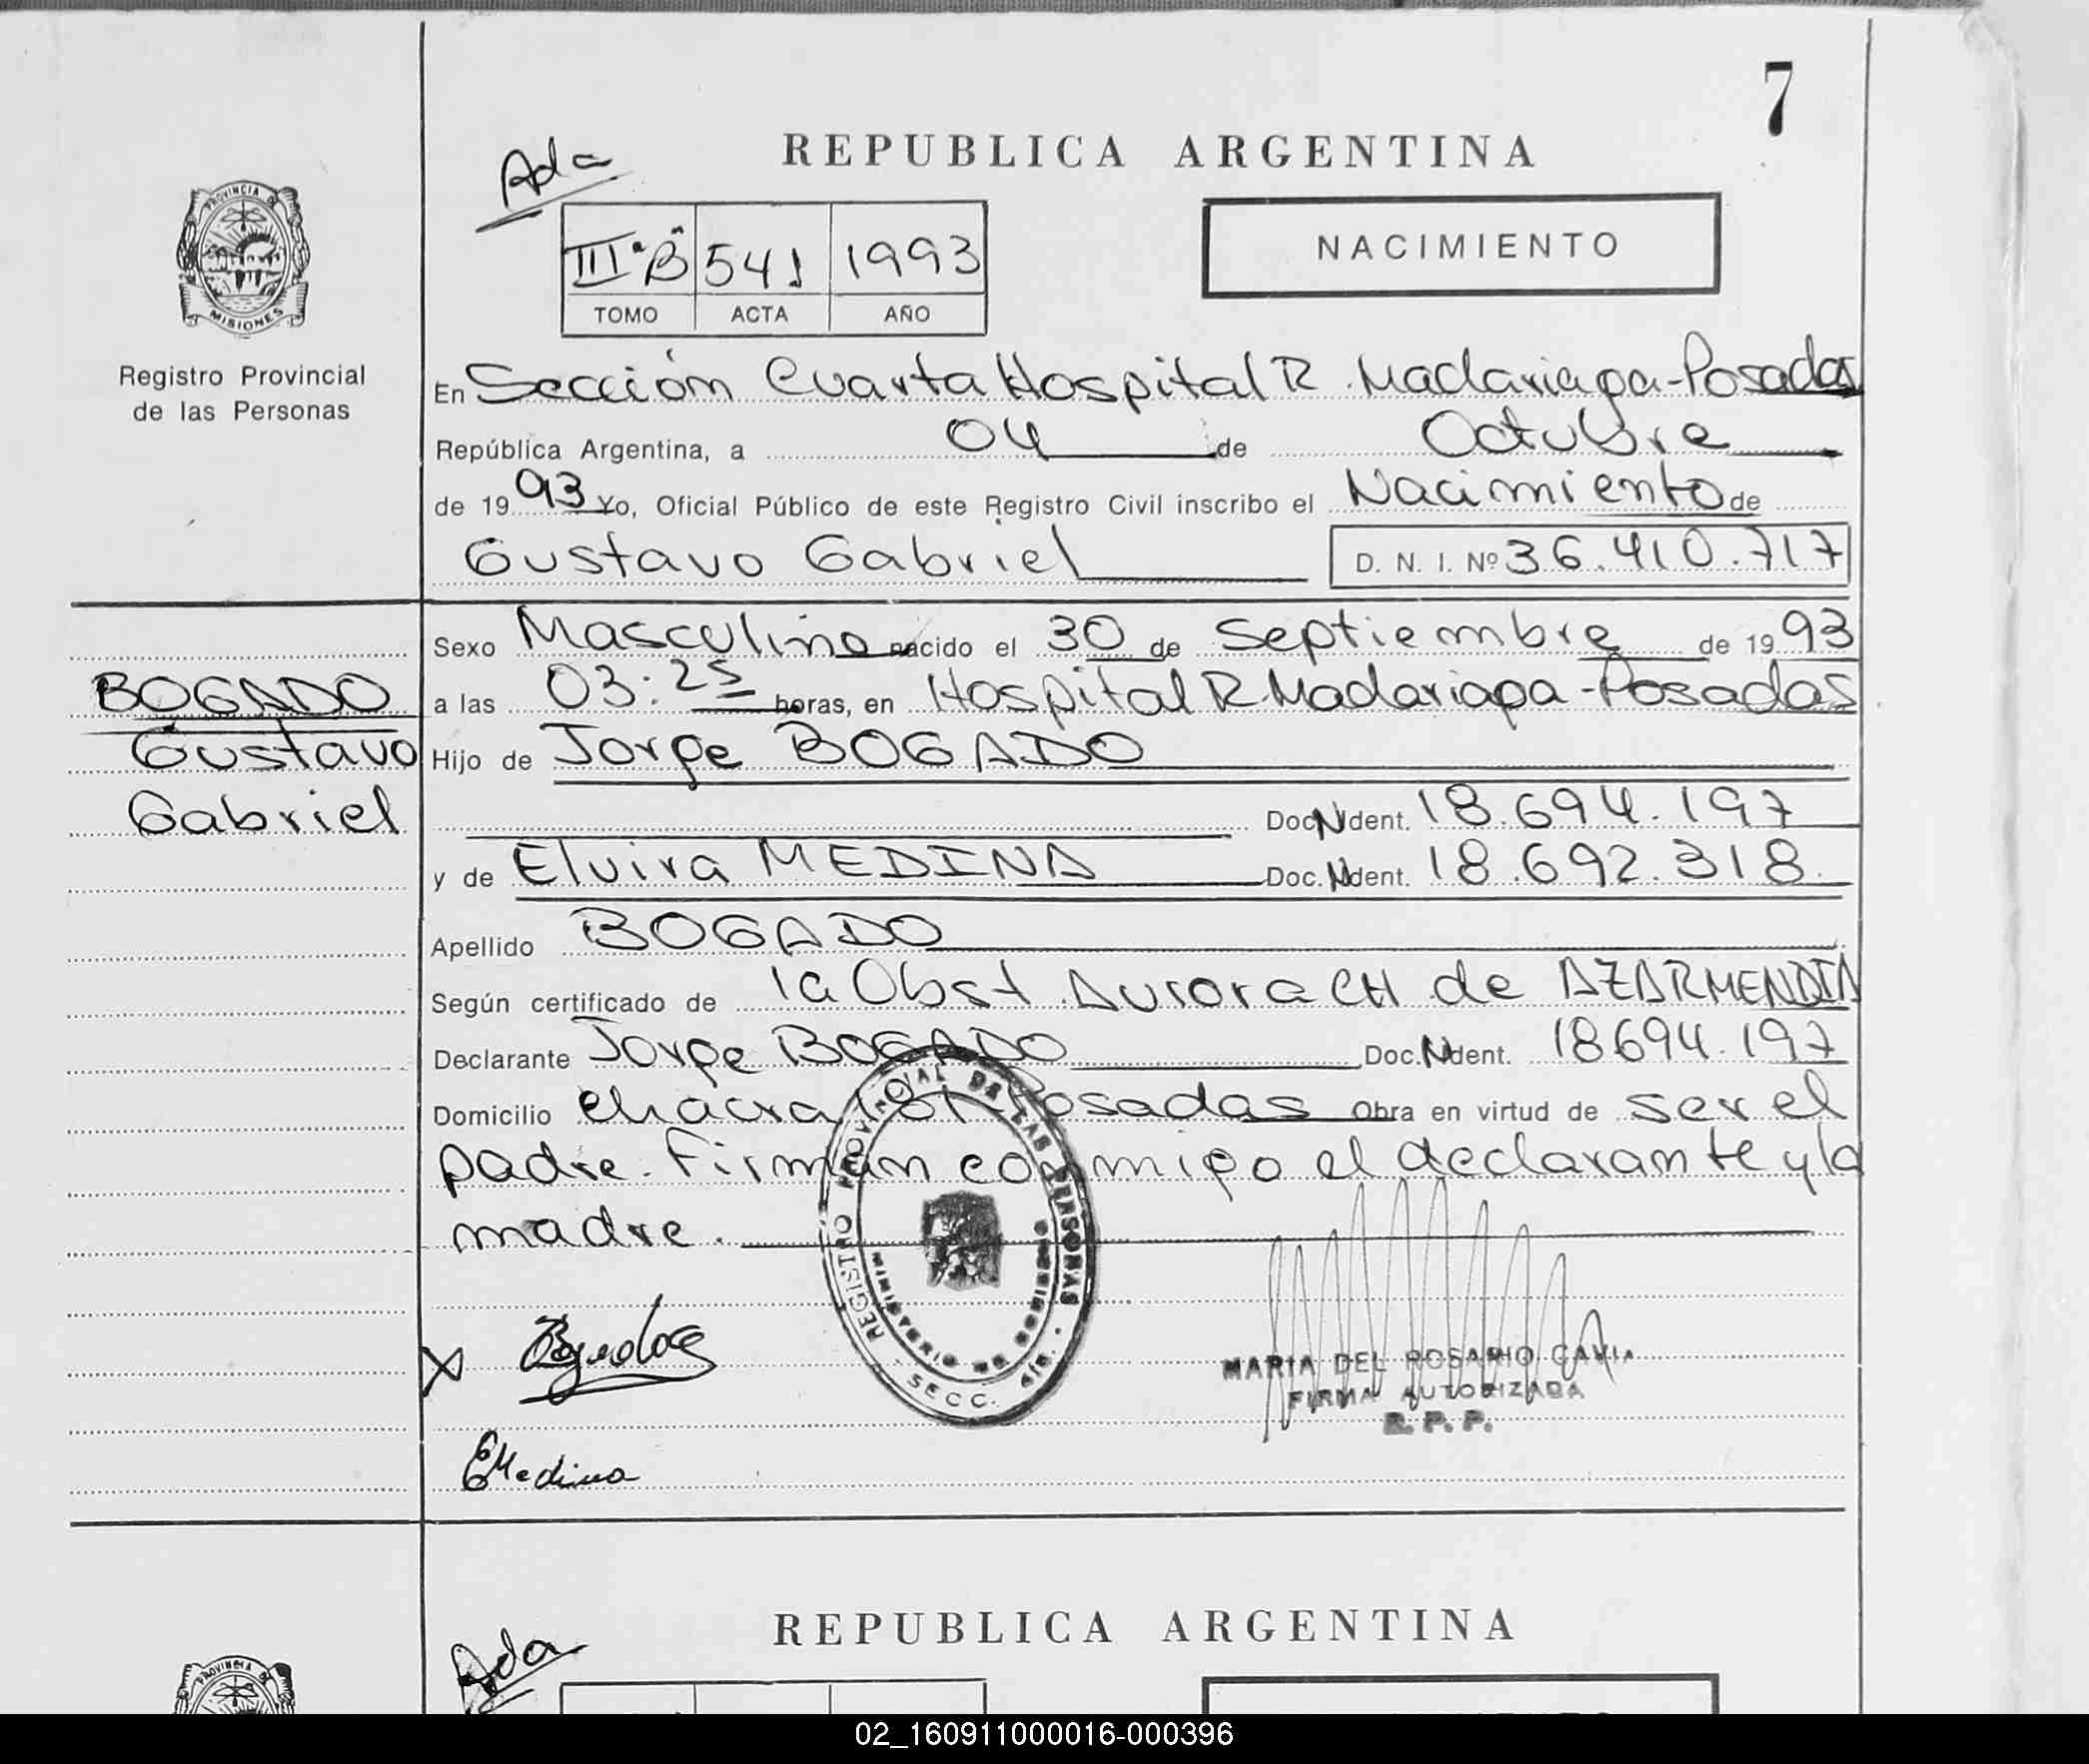 7
Ada
REPUBLICA ARGENTINA
NACIMIENTO
III°"B" 541 1993
TOMO ACTA AÑO
PROVINCIA DE
MISIONES
Registro Provincial
de las Personas
En Sección Cuarta Hospital R. Madariaga-Posadas
República Argentina, a 04 de Octubre
de 1993 Yo, Oficial Público de este Registro Civil inscribo el Nacimiento de
Gustavo Gabriel D. N. I. Nº 36.410.717
Sexo Masculino nacido el 30 de Septiembre de 1993
a las 03:25 horas, en Hospital R. Madariaga-Posadas
BOGADO
Gustavo
Gabriel
Hijo de Jorge BOGADO
Doc. N Ident. 18.694.197
y de Elvira MEDINA Doc. N Ident. 18.692.318
Apellido BOGADO
Según certificado de la Obst Aurora CH de AZARMENDIA
Declarante Jorge BOGADO Doc. N Ident. 18694.197
Domicilio chacra 181 Posadas Obra en virtud de ser el
padre. Firman conmigo el declarante y la
madre.
REGISTRO PROVINCIAL DE LAS PERSONAS
MINISTERIO DE GOBIERNO
SECC. 4ta.
X
MARIA DEL ROSARIO GAVIA
FIRMA AUTORIZADA
R. P. P.
EMedina
REPUBLICA ARGENTINA
Ada
PROVINCIA DE
02_160911000016-000396